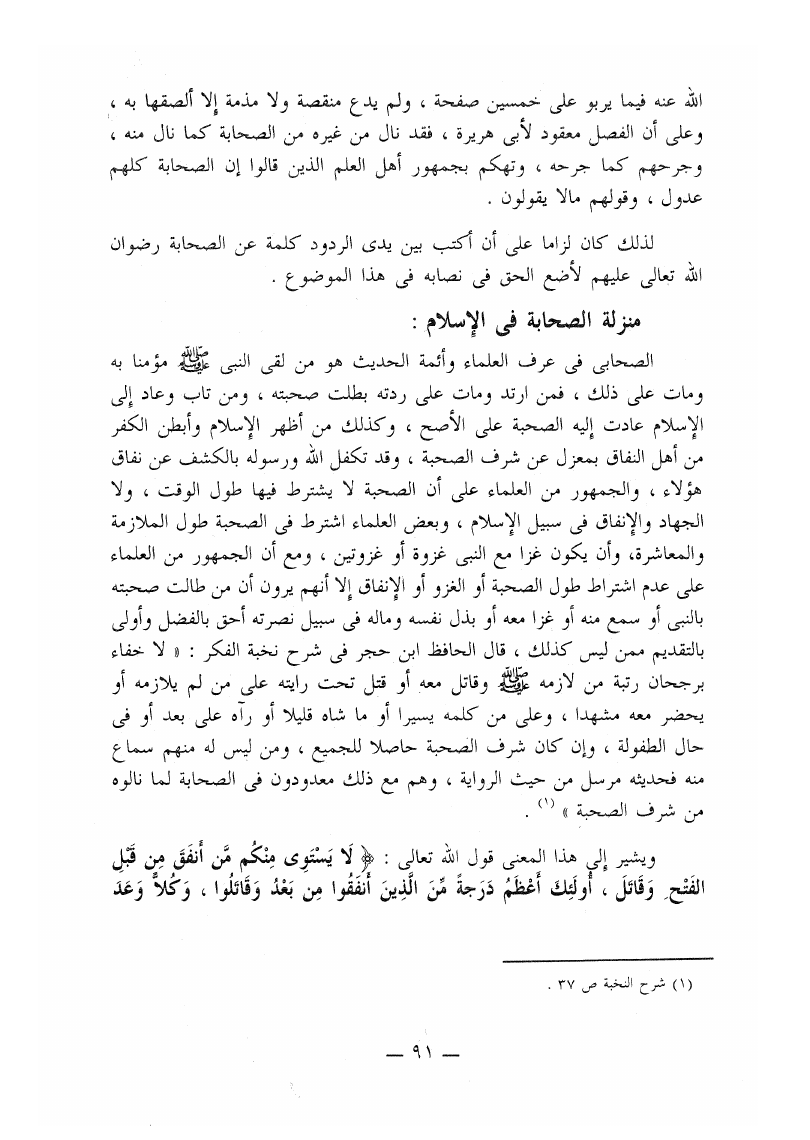 الله عنه فيما يربو على خمسين صفحة ، ولم يدع منقصة ولا مذمة إلا ألصقها به ،
وعلى أن الفصل معقود لأبى هريرة ، فقد نال من غيره من الصحابة كما نال منه ،
وجرحهم كما جرحه ، وتهكم بجمهور أهل العلم الذين قالوا إن الصحابة كلهم
عدول ، وقولهم مالا يقولون .
لذلك كان لزاما على أن أكتب بين يدى الردود كلمة عن الصحابة رضوان
الله تعالى عليهم لأضع الحق فى نصابه فى هذا الموضوع .
منزلة الصحابة فى الإسلام :
الصحابى فى عرف العلماء وأئمة الحديث هو من لقى النبى ﷺ مؤمنا به
ومات على ذلك ، فمن ارتد ومات على ردته بطلت صحبته ، ومن تاب وعاد إلى
الإسلام عادت إليه الصحبة على الأصح ، وكذلك من أظهر الإسلام وأبطن الكفر
من أهل النفاق بمعزل عن شرف الصحبة ، وقد تكفل الله ورسوله بالكشف عن نفاق
هؤلاء ، والجمهور من العلماء على أن الصحبة لا يشترط فيها طول الوقت ، ولا
الجهاد والإنفاق فى سبيل الإسلام ، وبعض العلماء اشترط فى الصحبة طول الملازمة
والمعاشرة، وأن يكون غزا مع النبى غزوة أو غزوتين ، ومع أن الجمهور من العلماء
على عدم اشتراط طول الصحبة أو الغزو أو الإنفاق إلا أنهم يرون أن من طالت صحبته
بالنبى أو سمع منه أو غزا معه أو بذل نفسه وماله فى سبيل نصرته أحق بالفضل وأولى
بالتقديم ممن ليس كذلك ، قال الحافظ ابن حجر فى شرح نخبة الفكر : « لا خفاء
برجحان رتبة من لازمه ﷺ وقاتل معه أو قتل تحت رايته على من لم يلازمه أو
يحضر معه مشهدا ، وعلى من كلمه يسيرا أو ما شاه قليلا أو رآه على بعد أو فى
حال الطفولة ، وإن كان شرف الصحبة حاصلا للجميع ، ومن ليس له منهم سماع
منه فحديثه مرسل من حيث الرواية ، وهم مع ذلك معدودون فى الصحابة لما نالوه
من شرف الصحبة » (١) .
ويشير إلى هذا المعنى قول الله تعالى : ﴿ لَا يَسْتَوِى مِنْكُم مَّن أَنفَقَ مِن قَبْلِ
الفَتْحِ وَقَاتَلَ ، أُولَئِكَ أَعْظَمُ دَرَجةً مِّنَ الَّذِينَ أَنفَقُوا مِن بَعْدُ وَقَاتَلُوا ، وَكُلاًّ وَعَدَ
(١) شرح النخبة ص ٣٧ .
— ٩١ —